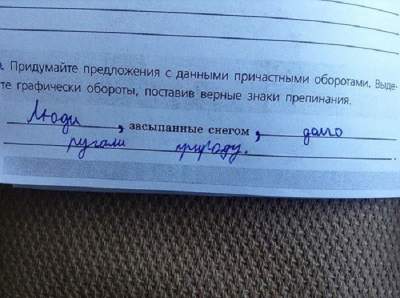 . Придумайте предложения с данными причастными оборотами. Выде-
те графически обороты, поставив верные знаки препинания.
Люди, засыпанные снегом, долго
ругали природу.